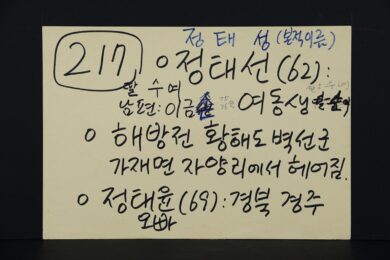 정태성(본적이름)
217 o 정태선(62):
딸 수여
남편: 이금 여동생
o 해방전 황해도 벽선군
가재면 자양리에서 헤어짐.
o 정태윤(69): 경북 경주
오빠